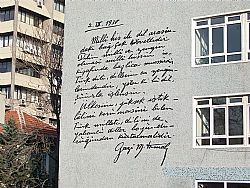 2. IX. 1930
Milli his ile dil arasın-
daki bağ çok kuvvetlidir
Dilin milli ve zengin
olması milli hissin
inkişafında başlıca müessirdir.
Türk dili, dillerin en zengin-
lerindendir, yeter ki bu dil,
şuurla işlensin.
Ülkesini, yüksek istik-
lâlini korumasını bilen
Türk milleti, dilini de
yabancı diller boyundu-
ruğundan kurtarmalıdır.
Gazi M. Kemal